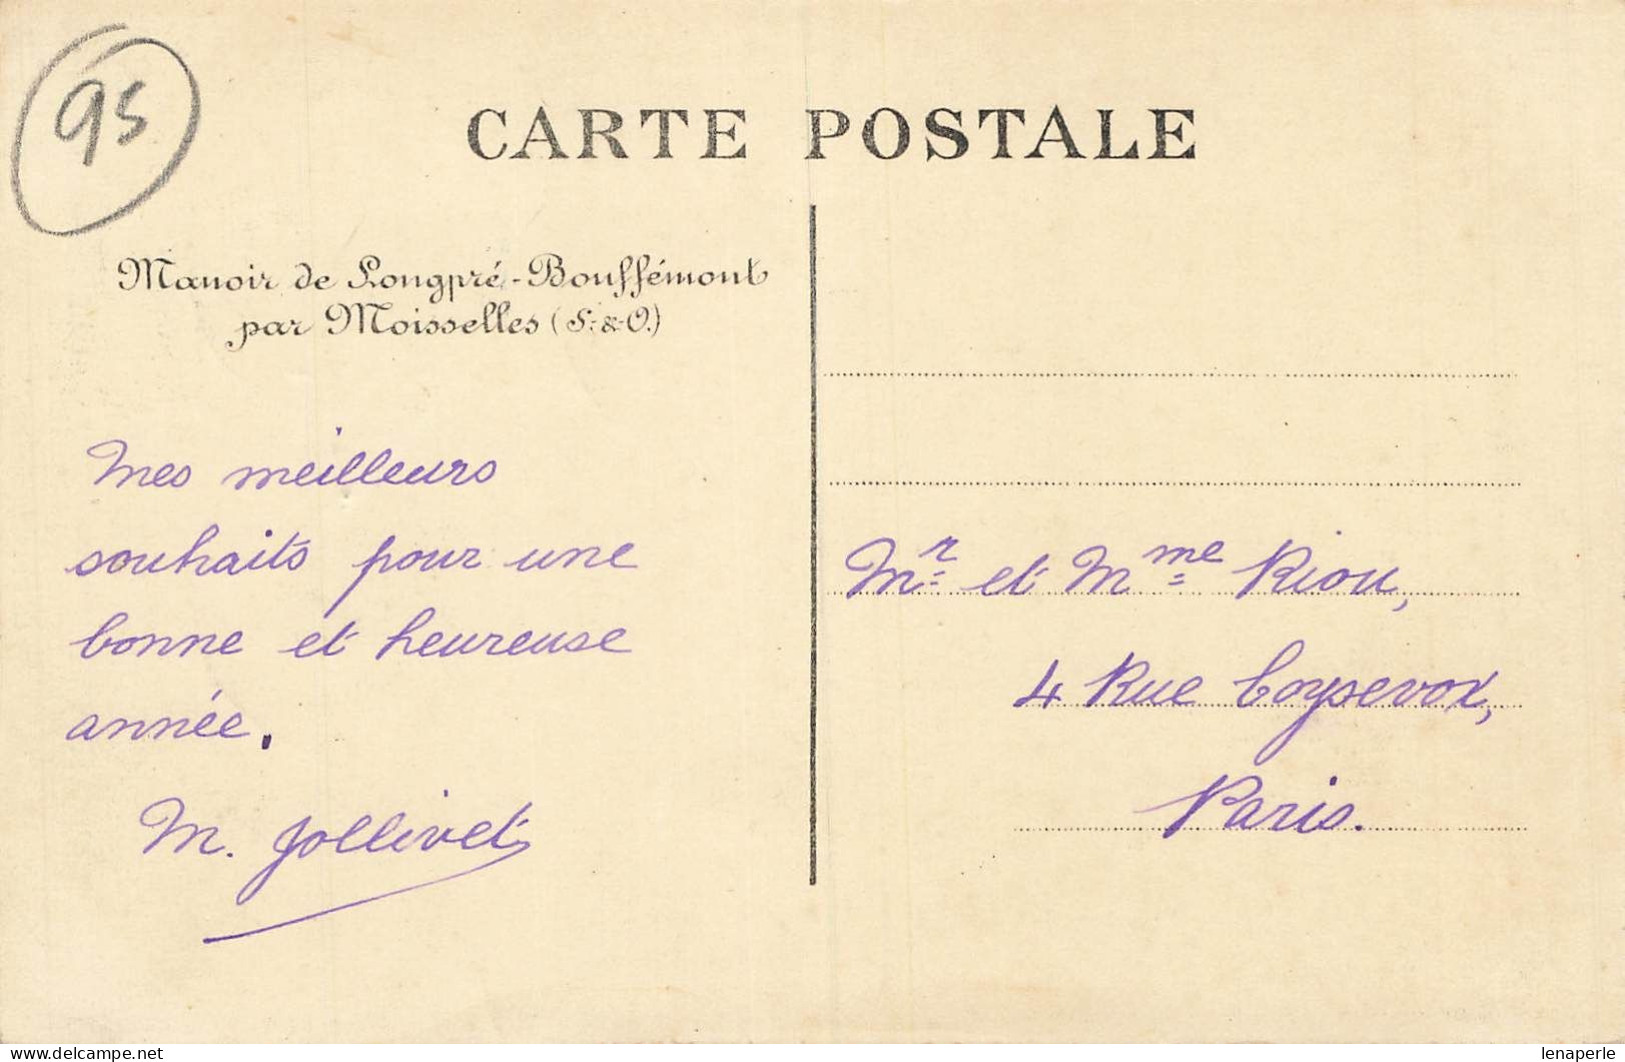 95
CARTE POSTALE
Manoir de Longpré-Bouffémont
par Moisselles (S.-&-O.)
Mes meilleurs
souhaits pour une
bonne et heureuse
année.
M. Jollivet
Mr et Mme Riou,
4 Rue Coysevox,
Paris.
www.delcampe.net
lenaperle